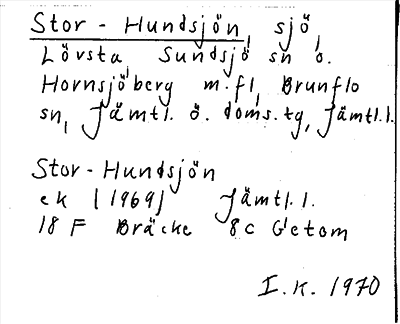 Stor-Hundsjön, sjö,
Lövsta, Sundsjö sn o.
Hornsjöberg m.fl, Brunflo
sn, Jämtl. ö. doms.tg, Jämtl.l.
Stor-Hundsjön
ek (1969) Jämtl.l.
18 F Bräcke 8c Getom
I.K. 1970